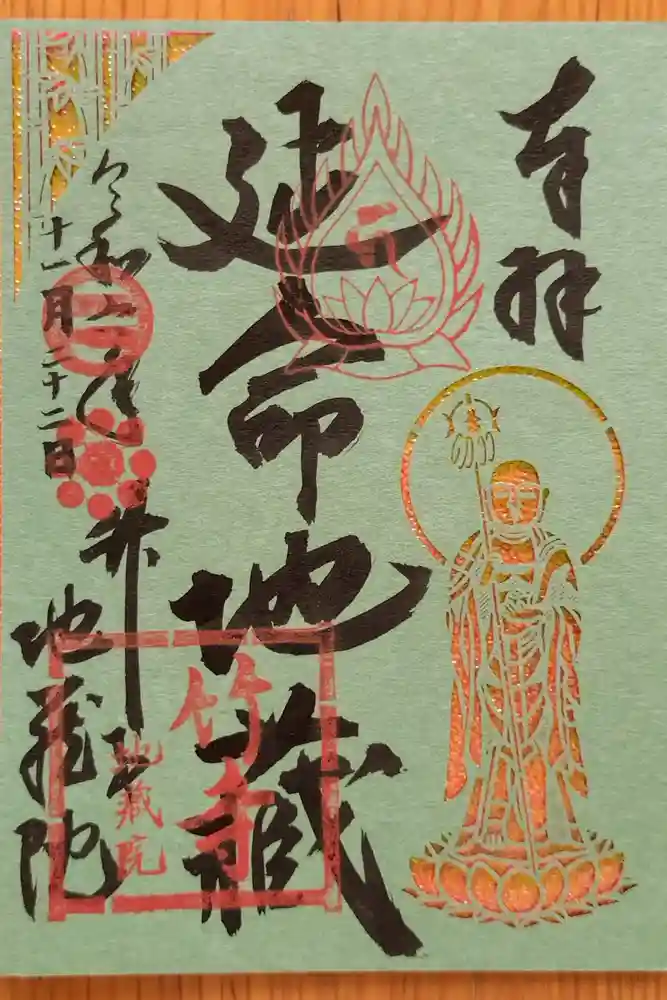 奉拝
延命地蔵
令和二年
十一月二十二日
竹寺
地蔵院
竹寺
地蔵院